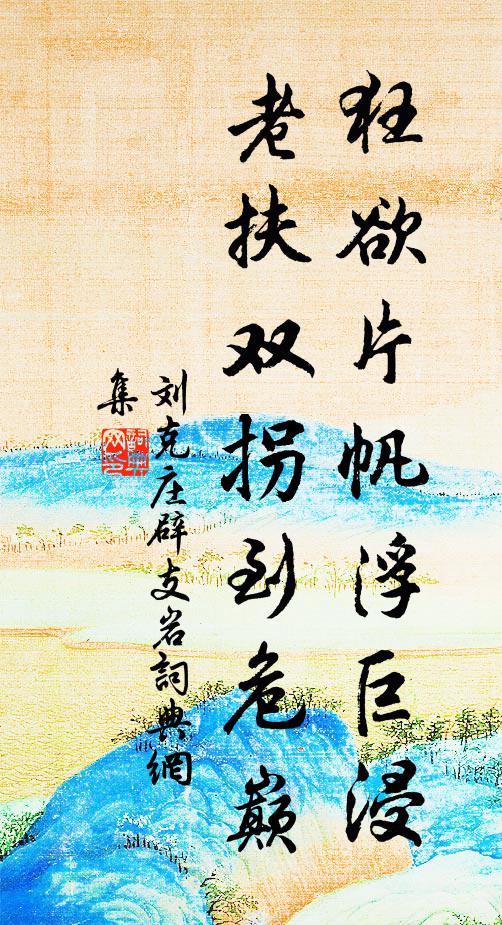 狂欲片帆浮巨浸
老扶双拐到危巅
刘克庄辟支岩詞典網
集